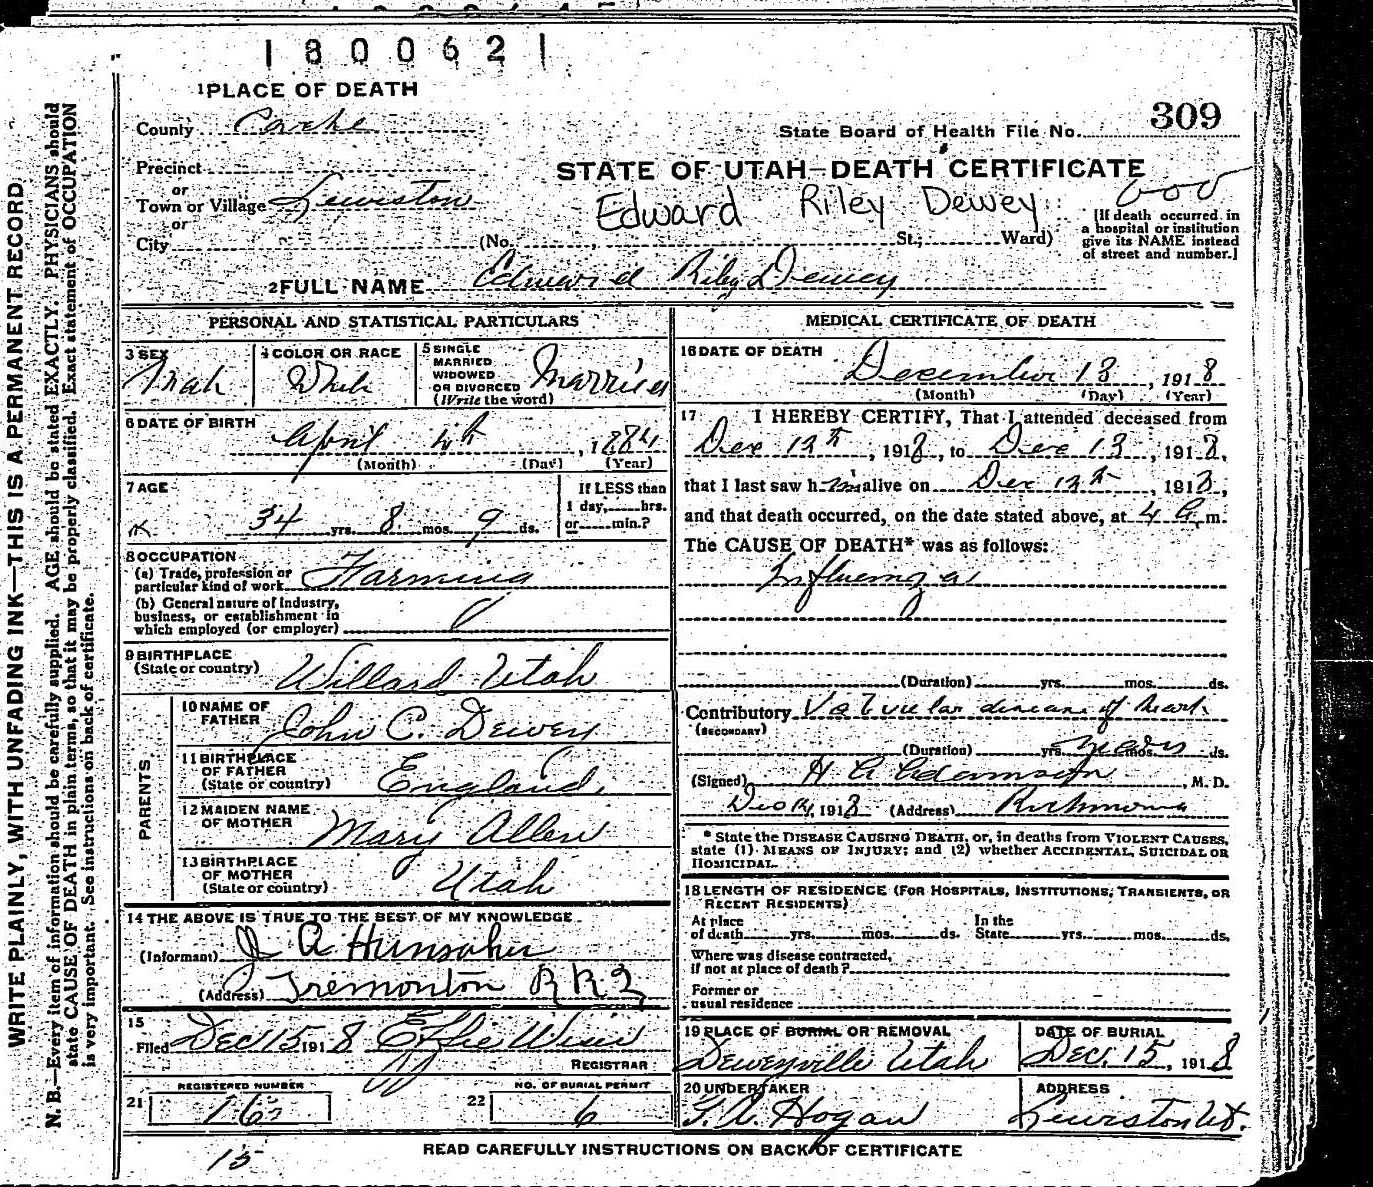 1800621
1 PLACE OF DEATH
County Cache
State Board of Health File No. 309
Precinct
or
Town or Village Lewiston
or
City
STATE OF UTAH—DEATH CERTIFICATE
Edward Riley Dewey
(No. St.; Ward)
[If death occurred in a hospital or institution give its NAME instead of street and number.]
2 FULL NAME Edward Riley Dewey
PERSONAL AND STATISTICAL PARTICULARS
3 SEX Male
4 COLOR OR RACE White
5 SINGLE MARRIED WIDOWED OR DIVORCED (Write the word) Married
6 DATE OF BIRTH April 4th, 1884
(Month) (Day) (Year)
7 AGE 34 yrs. 8 mos. 9 ds.
If LESS than 1 day, hrs. or min.?
8 OCCUPATION
(a) Trade, profession or particular kind of work Farming
(b) General nature of industry, business, or establishment in which employed (or employer)
9 BIRTHPLACE (State or country) Willard Utah
PARENTS.
10 NAME OF FATHER John C. Dewey
11 BIRTHPLACE OF FATHER (State or country) England.
12 MAIDEN NAME OF MOTHER Mary Allen
13 BIRTHPLACE OF MOTHER (State or country) Utah
14 THE ABOVE IS TRUE TO THE BEST OF MY KNOWLEDGE
(Informant) Hunsaker
(Address) Tremonton R R 2
15 Filed Dec 15 1918 Effie Wiser
REGISTRAR
21 REGISTERED NUMBER 16
22 NO. OF BURIAL PERMIT 6
15
MEDICAL CERTIFICATE OF DEATH
16 DATE OF DEATH December 13, 1918
(Month) (Day) (Year)
17 I HEREBY CERTIFY, That I attended deceased from
Dec 12th, 1918, to Dec 13, 1918,
that I last saw him alive on Dec 12th, 1918,
and that death occurred, on the date stated above, at 4 a.m.
The CAUSE OF DEATH* was as follows:
Influenza
(Duration) yrs. mos. ds.
Contributory Valvular disease of heart
(SECONDARY)
(Duration) yrs. years mos. ds.
(Signed) H A Adamson, M. D.
Dec 14, 1918 (Address) Richmond
* State the DISEASE CAUSING DEATH, or, in deaths from VIOLENT CAUSES, state (1) MEANS OF INJURY; and (2) whether ACCIDENTAL, SUICIDAL OR HOMICIDAL.
18 LENGTH OF RESIDENCE (FOR HOSPITALS, INSTITUTIONS, TRANSIENTS, OR RECENT RESIDENTS)
At place of death yrs. mos. ds. In the State yrs. mos. ds.
Where was disease contracted, if not at place of death?
Former or usual residence
19 PLACE OF BURIAL OR REMOVAL Deweyville Utah
DATE OF BURIAL Dec. 15, 1918
20 UNDERTAKER Hogan
ADDRESS Lewiston Ut.
READ CAREFULLY INSTRUCTIONS ON BACK OF CERTIFICATE
WRITE PLAINLY, WITH UNFADING INK—THIS IS A PERMANENT RECORD
N. B.—Every item of information should be carefully supplied. AGE should be stated EXACTLY. PHYSICIANS should
state CAUSE OF DEATH in plain terms, so that it may be properly classified. Exact statement of OCCUPATION
is very important. See instructions on back of certificate.